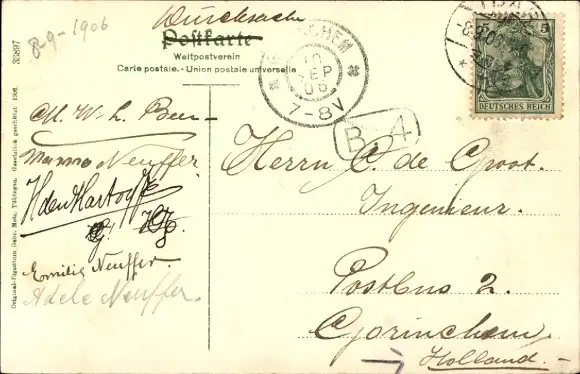 8-9-1906
Drucksache
Postkarte
Weltpostverein
Carte postale. - Union postale universelle
33897
Original-Eigentum Gebr. Metz, Tübingen. Gesetzlich geschützt 1906.
CHEM
10
SEP
06
7-8V
B 4
5
DEUTSCHES REICH
Neuffer
Emilie Neuffer.
Adele Neuffer.
Herrn C. de Groot.
Ingenieur.
Postbus 2.
Gorinchem.
Holland.